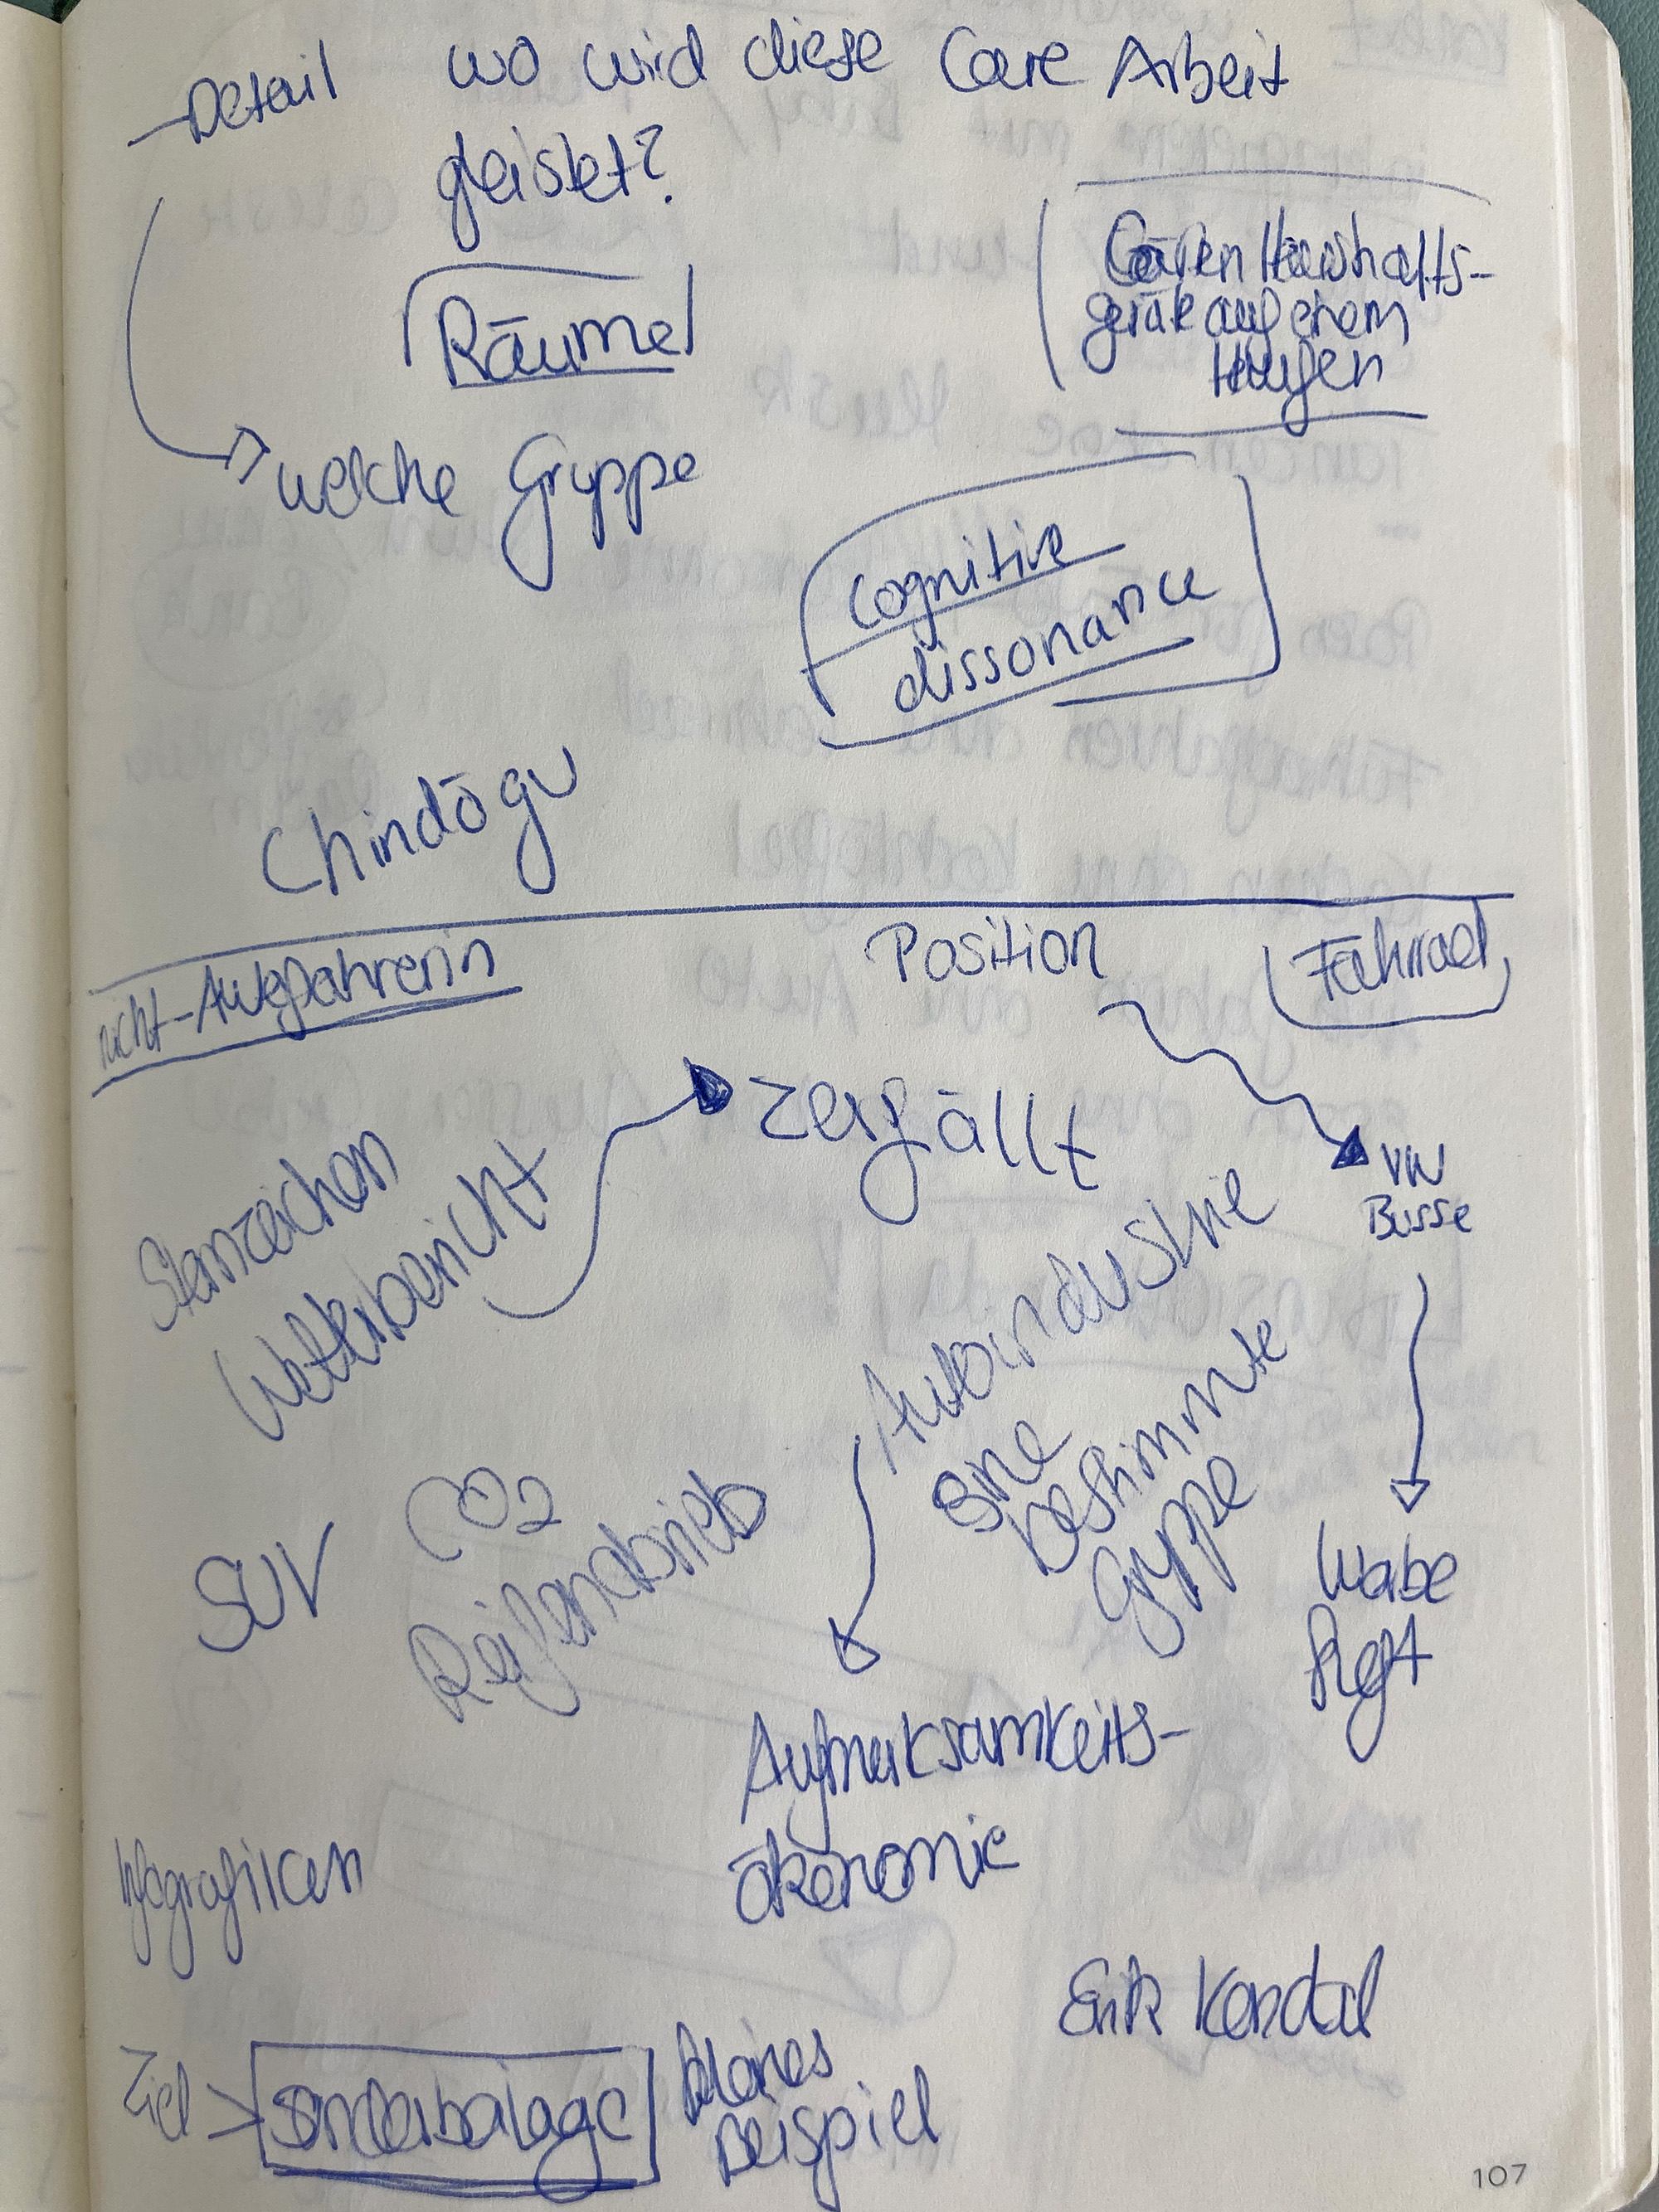 - Detail wo wird diese Care Arbeit
geleistet?
Räume
Haushalts-
geräte auf einem
Haufen
welche Gruppe
cognitive
dissonance
Chindōgu
nicht-Autofahrerin
Position
Fahrrad
zerfällt
VW
Busse
Sternzeichen
Wetterbericht
Autoindustrie
eine
bestimmte
Gruppe
CO2
SUV
Reifenabrieb
Aufmerksamkeits-
ökonomie
Infografiken
Erik Kendal
Ziel > sonderbeilage
kleines
Beispiel
107